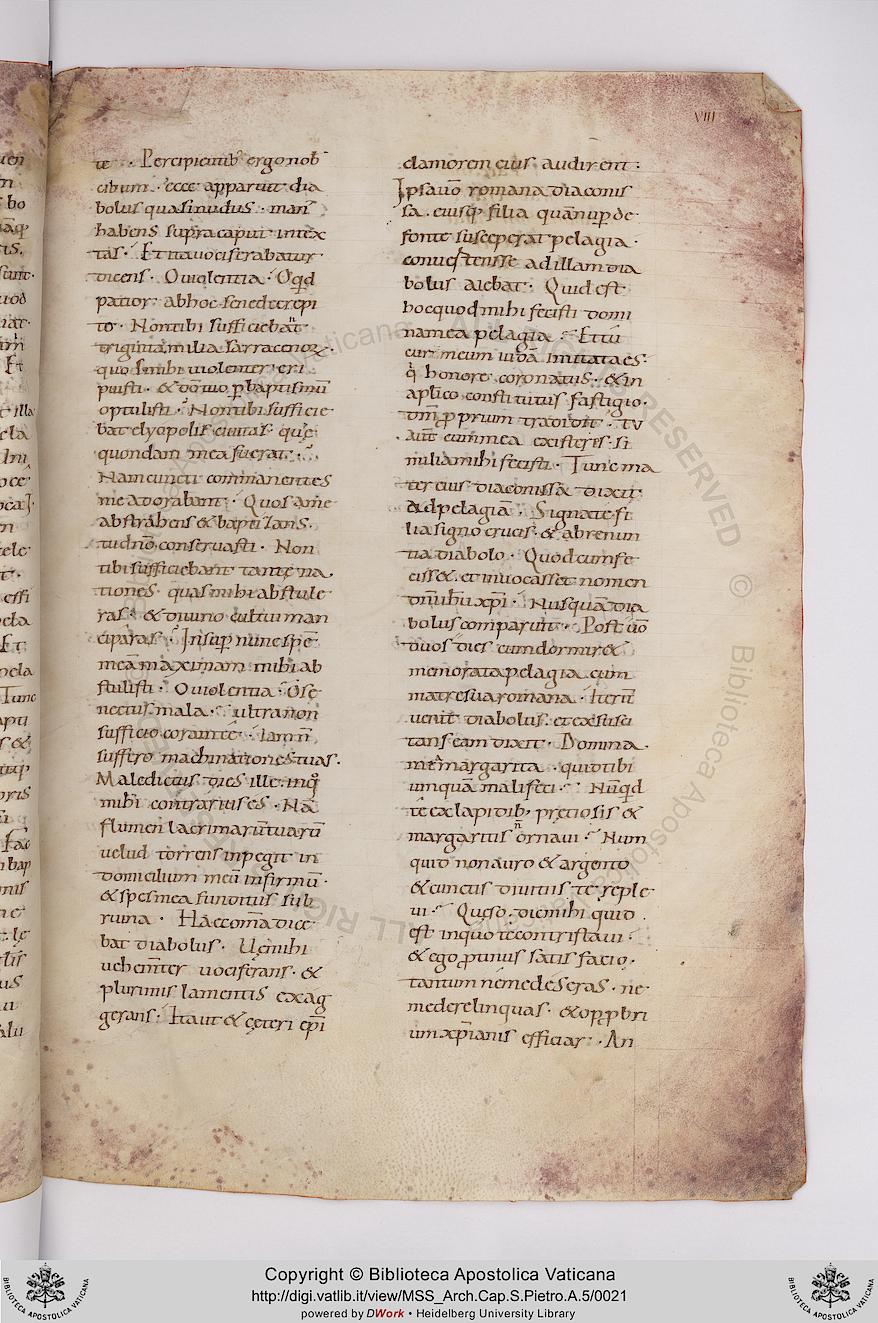 VIII
te · Percipientib' ergo nob
cibum · ecce apparuit dia
bolus quasi nudus · man'
habens supra caput intex
tas · Et ita vociferabatur
dicens · O violentia · O qd
patior ab hoc sene decrepi
to · Non tibi sufficiebant
triginta milia sarracenoꝝ ·
quos mihi violenter eri
puisti · & dño tuo p baptismū
optulisti · Non tibi sufficie
bat elyopolis civitas que
quondam mea fuerat ·
Nam cuncti commanentes
me adorabant · Quos a me
abstrahens & baptizans ·
tu dño conservasti · Non
tibi sufficiebant tante na
tiones · quas mihi abstule
ras · & divino cultui man
ciparas · Insup nunc spē
meā maximam mihi ab
stulisti · O violentia · O se
nectus mala · ultra non
sufficio coram te · Iam ñ
suffero machinationes tuas ·
Maledictus dies ille inq
mihi contrarius es · Nā
flumen lacrimarū tuarū
velud torrens inpegit in
domicilium meū infirmū ·
& spes mea funditus sub
ruina · Haec omā dice
bat diabolus · Ue mihi
vehemter vociferans · &
plurimis lamentis exag
gerans · Ita ut & ceteri epi
clamorem eius audirent :
Ipsa vō romana diaconis
sa · eiusq filia quā nup de
fonte susceperat pelagia ·
convestiensse ad illam dia
bolus aiebat · Quid est
hoc quod mihi fecisti domi
na mea pelagia · Et tu
cur meum iudā imitata es ·
q honore coronatus · & in
aplico constitutus fastigio ·
dm pprium tradidit · Tu
aut cum mea existeris si
milia mihi fecisti · Tunc ma
ter eius diaconissa dixit
ad pelagiā · Signa te fi
lia signo crucis · & abrenun
tia diabolo · Quod cum fe
ciss& · et invocasset nomen
dñi ihu xpi · Nusquā dia
bolus comparuit · Post vō
duos dies cum dormir&
memorata pelagia cum
matre sua romana · Iterū
venit diabolus · et exsusci
tans eam dixit · Domina
mea margarita · quid tibi
umquā mali feci · Nuqd
te ex lapidib' pretiosis &
margaritis ñ ornavi · Num
quid non auro & argento
& cunctis divitiis te reple
vi · Queso dic mihi quid
est in quo te contristavi ·
& ego ptinus satis facio ·
tantum ne me deseras · ne
me derelinquas · & opprobri
um xpianis efficiar · An
Copyright © Biblioteca Apostolica Vaticana
http://digi.vatlib.it/view/MSS_Arch.Cap.S.Pietro.A.5/0021
powered by DWork • Heidelberg University Library